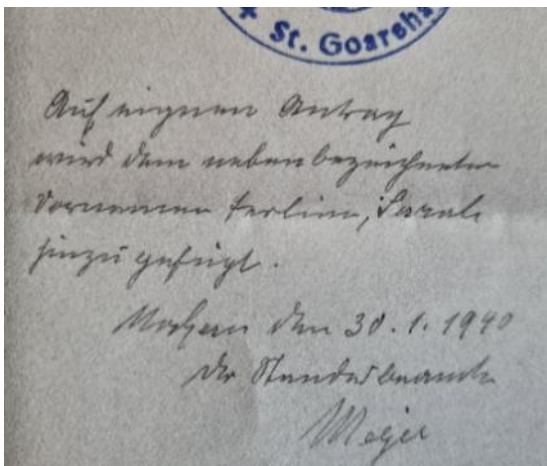 St. Goarsha
Auf eignen Antrag
wird dem nebenbezeichneten
Vornamen Sara
hinzu gefügt.
den 30.1.1940
der Standesbeamte